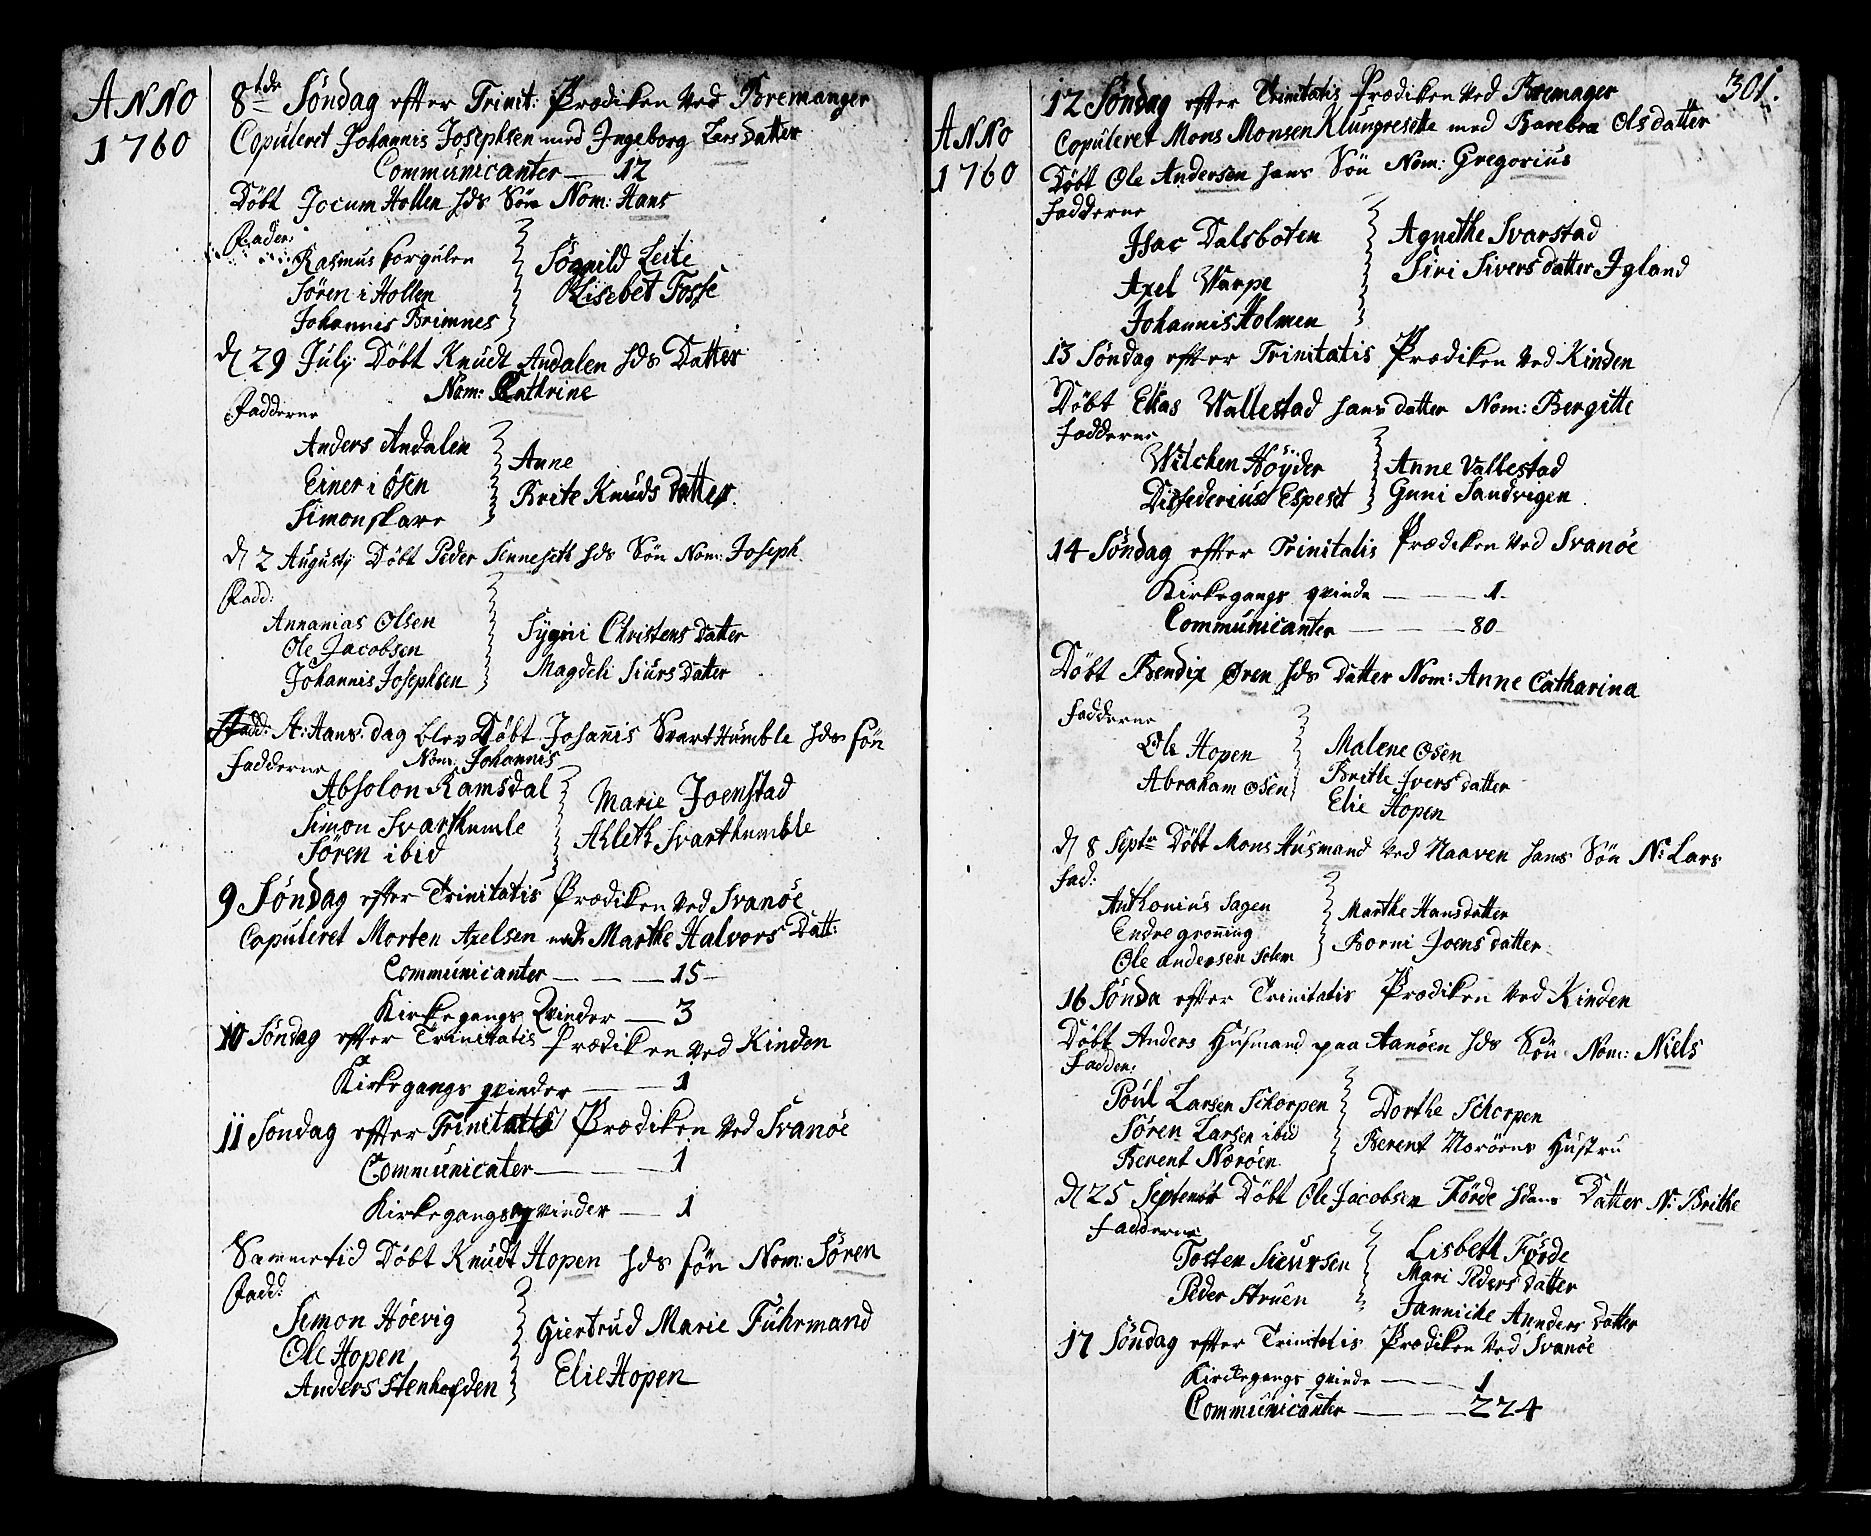 ANNO
1760
8tde Söndag efter Trinit: Prædiken ved Bremanger
Copuleret Johannis Josephsen med Ingeborg Lars datter
Communicanter — 12
Döbt Jocum Hollen hds Sön Nom: Hans
Fader:
Rasmus Borgulen
Sören i Hollen
Johannis Brimnes
Sögnild Leite
Lisebet Fosse
d 29 July Döbt Knudt Andalen hds Datter
Nom: Cathrine
Fadderne
Anders Andalen
Einer i Osen
Simon skare
Anne
Brite Knuds datter
d 2 Augusty Döbt Peder Senneseth hds Sön Nom: Joseph
Fadd:
Annanias Olsen
Ole Jacobsen
Johannis Josephsen
Sygni Christens datter
Magdeli Siurs datter
A: Hans. dag blev Döbt Johanis SvartHumble hds sön
Nom: Johannis
Fadderne
Absolon Ramsdal
Simon Svarthumle
Sören ibid
Marie Joenstad
Ahleth Svarthumble
9 Söndag efter Trinitatis Prædiken ved Svanöe
Copuleret Morten Axelsen med Marthe Halvors Datt:
Communicanter — — — 15
Kirkegangs Qvinder — 3
10 Söndag efter Trinitatis Prædiken ved Kinden
Kirkegangs qvinder — — 1
11 Söndag efter Trinitatis Prædiken ved Svanöe
Communicater — — 1
Kirkegangs qvinder — 1
Sammetid Döbt Knudt Hopen hds sön Nom: Sören
Fadd:
Simon Höevig
Ole Hopen
Anders Stenhofden
Giertrud Marie Fuhrmand
Elie Hopen
301.
ANNO
1760
12 Söndag efter Trinitatis Prædiken ved Bremager
Copuleret Mons Monsen Klungresette med Barebra Olsdatter
Döbt Ole Andersen hans Sön Nom: Gregorius
Fadderne
Isac Dalsboten
Axel Warpe
Johannis Holmen
Agnethe Svarstad
Siri Sivers datter Igland
13 Söndag efter Trinitatis Prædiken ved Kinden
Döbt Elias Wallestad hans datter Nom: Bergitte
Fadderne
Wilchen Höyder
Espeset
Anne Vallestad
Guni Sandvigen
14 Söndag efter Trinitatis Prædiken ved Svanöe
Kirkegangs qvinde — — 1
Communicanter — — 80
Döbt Bendix Øren hds datter Nom: Anne Catharina
Fadderne
Ole Hopen
Abraham Osen
Malene Osen
Brithe Ivers datter
Elie Hopen
d 8 Septr Döbt Mons Husmand ved Naaven hans Sön N: Lars
Fad:
Anthonius Sagen
Endre gröning
Ole andersen Solem
Marthe Hansdatter
Borni Joens datter
16 Sönda efter Trinitatis Prædiken ved Kinden
Döbt Anders Husmand paa Aanöen hds Sön Nom: Niels
Fadder:
Poul Larsen Schorpen
Sören Larsen ibid
Berent Noröen
Dorthe Schorpen
Berent Noröens Hustru
d 25 Septembr Döbt Ole Jacobsen Förde hans Datter N: Brithe
Fadderne
Tosten Sieursen
Peder Struen
Lisbeth Förde
Mari Peders datter
Jannicke Annders datter
17 Söndag efter Trinitatis Prædiken ved Svanöe
Kirckegangs qvinde — — 1
Communicanter — — 224